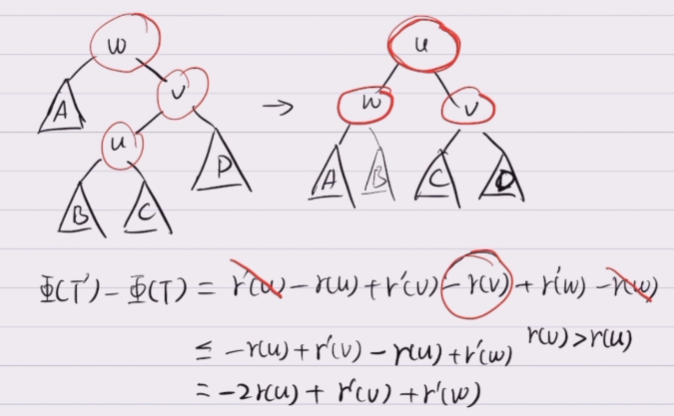 w u
A v → w v
u D A B C D
B C
Φ(T') - Φ(T) = r'(u) - r(u) + r'(v) - r(v) + r'(w) - r(w)
≤ -r(u) + r'(v) - r(u) + r'(w) r(v) > r(u)
= -2r(u) + r'(v) + r'(w)